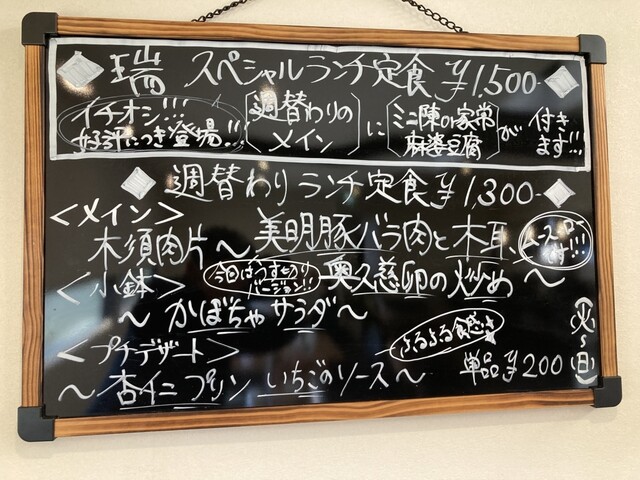 瑞 スペシャルランチ定食 ¥1,500
イチオシ!!! 好評につき登場!!! 週替わりのメイン に ミニ陳の家常麻婆豆腐 が 付きます!!!
週替わり ランチ定食 ¥1,300
<メイン>
木須肉片 〜 美明豚バラ肉と木耳、
今回はうす切りバージョン!! 奥久慈卵の炒め 〜
<小鉢>
〜 かぼちゃサラダ 〜
<プチデザート> ふるふる食感
〜 杏仁プリン いちごのソース 〜 単品 ¥200